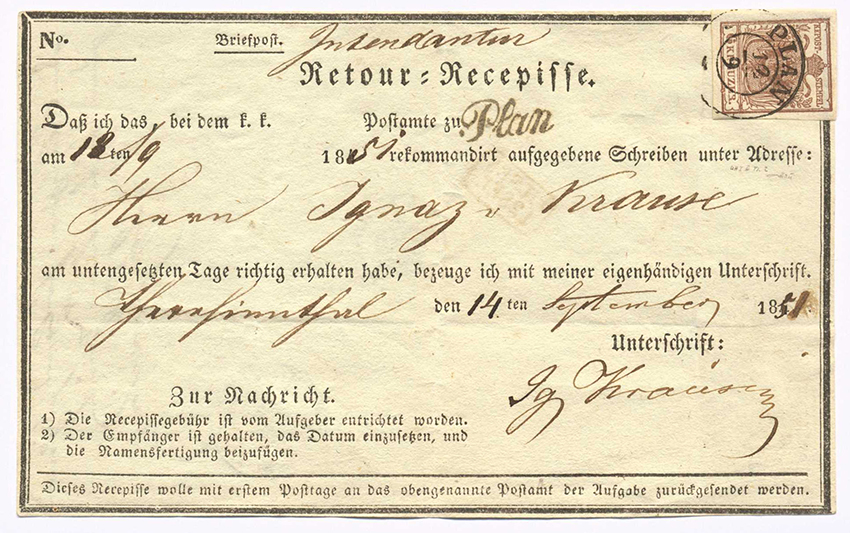 No.
Briefpost.
Intendantur
Retour-Recepisse.
Daß ich das, bei dem k. k. Postamte zu Plan
am 12 ten /9 1851 rekommandirt aufgegebene Schreiben unter Adresse:
Herrn Ignaz v Krause
am untengesetzten Tage richtig erhalten habe, bezeuge ich mit meiner eigenhändigen Unterschrift.
Theresienthal den 14. ten September 1851.
Unterschrift:
Ig Krause
Zur Nachricht.
1) Die Recepissegebühr ist vom Aufgeber entrichtet worden.
2) Der Empfänger ist gehalten, das Datum einzusetzen, und
die Namensfertigung beizufügen.
Dieses Recepisse wolle mit erstem Posttage an das obengenannte Postamt der Aufgabe zurückgesendet werden.
PLAN
12
9